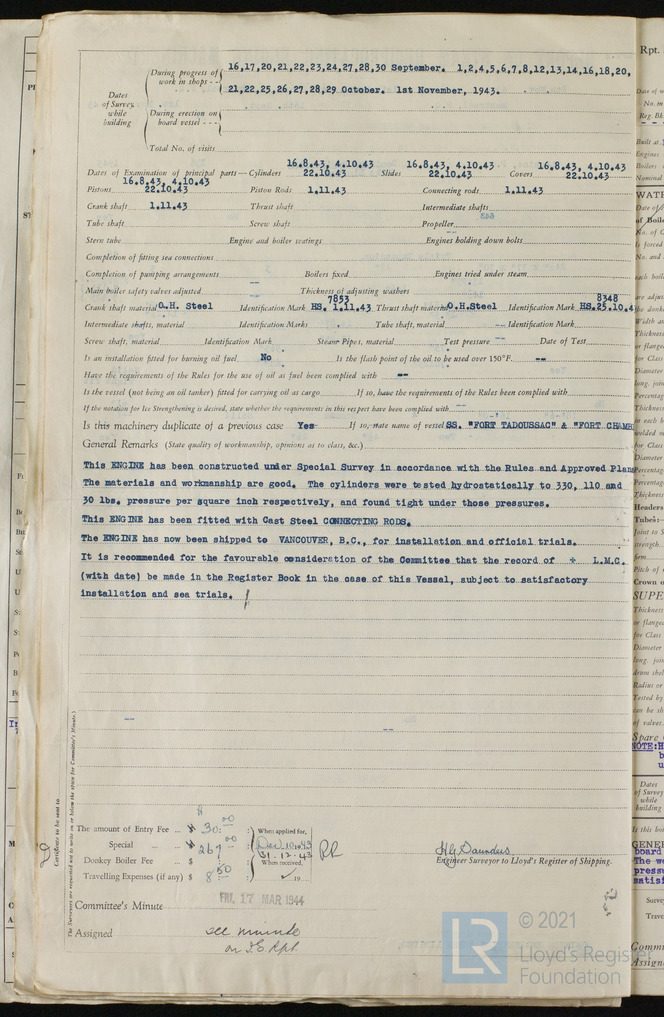 During progress of work in shops - - 16,17,20,21,22,23,24,27,28,30 September. 1,2,4,5,6,7,8,12,13,14,16,18,20,
21,22,25,26,27,28,29 October. 1st November, 1943.
Dates of Survey while building
During erection on board vessel - - -
Total No. of visits
Dates of Examination of principal parts—Cylinders 16.8.43, 4.10.43 22.10.43 Slides 16.8.43, 4.10.43 22.10.43 Covers 16.8.43, 4.10.43 22.10.43
Pistons 16.8.43, 4.10.43 22.10.43 Piston Rods 1.11.43 Connecting rods 1.11.43
Crank shaft 1.11.43 Thrust shaft Intermediate shafts
Tube shaft Screw shaft Propeller
Stern tube Engine and boiler seatings Engines holding down bolts
Completion of fitting sea connections
Completion of pumping arrangements Boilers fixed Engines tried under steam
Main boiler safety valves adjusted Thickness of adjusting washers
Crank shaft material O.H. Steel Identification Mark 7853 HS. 1.11.43 Thrust shaft material O.H.Steel Identification Mark 8348 HS.25.10.4
Intermediate shafts, material Identification Marks Tube shaft, material Identification Mark
Screw shaft, material Identification Mark Steam Pipes, material Test pressure Date of Test
Is an installation fitted for burning oil fuel No Is the flash point of the oil to be used over 150°F. --
Have the requirements of the Rules for the use of oil as fuel been complied with --
Is the vessel (not being an oil tanker) fitted for carrying oil as cargo If so, have the requirements of the Rules been complied with
If the notation for Ice Strengthening is desired, state whether the requirements in this respect have been complied with --
Is this machinery duplicate of a previous case Yes If so, state name of vessel SS. "FORT TADOUSSAC" & "FORT CHAMB
General Remarks (State quality of workmanship, opinions as to class, &c.)
This ENGINE has been constructed under Special Survey in accordance with the Rules and Approved Plans
The materials and workmanship are good. The cylinders were tested hydrostatically to 330, 110 and
30 lbs. pressure per square inch respectively, and found tight under those pressures.
This ENGINE has been fitted with Cast Steel CONNECTING RODS.
The ENGINE has now been shipped to VANCOUVER, B.C., for installation and official trials.
It is recommended for the favourable consideration of the Committee that the record of + L.M.C.
(with date) be made in the Register Book in the case of this Vessel, subject to satisfactory
installation and sea trials.
The amount of Entry Fee .. $ 30.00 When applied for,
Special .. $ 267.00 Dec. 10. 1943
Donkey Boiler Fee ... $ 31.12.43 When received,
Travelling Expenses (if any) $ 8.50 19
Engineer Surveyor to Lloyd's Register of Shipping.
Committee's Minute FRI. 17 MAR 1944
Assigned see minute
on F.E. Rpt.
Certificate to be sent to
(The Surveyors are requested not to write on or below the space for Committee's Minute.)
Rpt.
© 2021
LR Lloyd's Register
Foundation